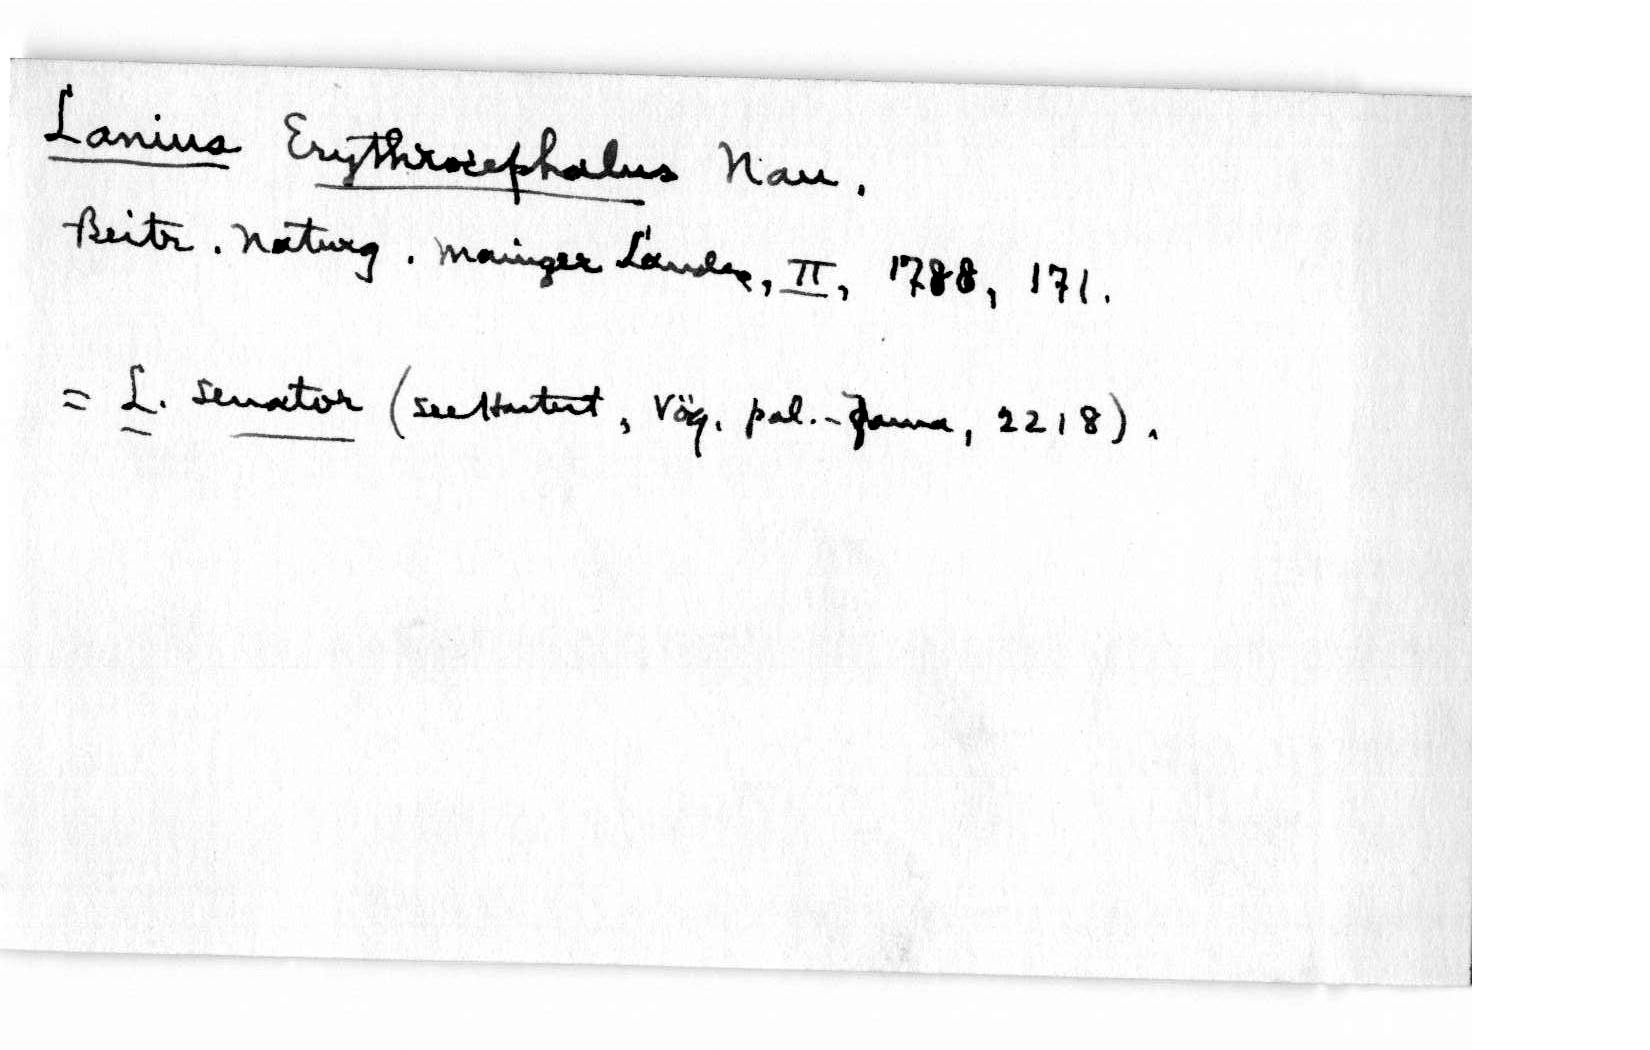 Lanius Erythrocephalus Nau.
Beitr. Naturg. Mainzer Landes, II, 1788, 171.
= L. senator (see Hartert, Vög. pal.-Fauna, 2218).